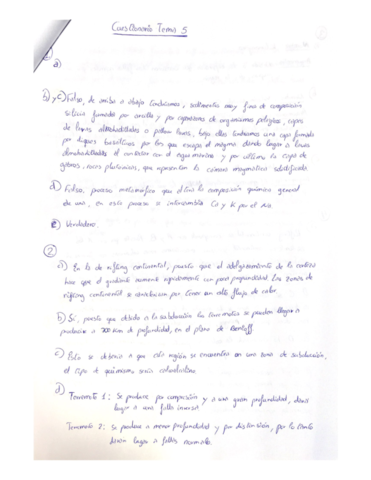 Cuestionario Tema 5
a)
b) y c) Falso, de arriba a abajo tendríamos, sedimentos muy finos de composición
silícea formada por arcilla y por caparazones de organismos pelágicos, capas
de lavas almohadilladas o pillow lavas, bajo ellas tendríamos una capa formada
por diques basálticos por los que escapa el magma dando lugar a lavas
almohadilladas al contactar con el agua marina y por último la capa de
gabros, rocas plutónicas, que representan la cámara magmática solidificada.
d) Falso, proceso metasomático que altera la composición química general
de una, en este proceso se intercambia Ca y K por el Na.
e) Verdadero.
2
a) En la de rifting continental, puesto que el adelgazamiento de la corteza
hace que el gradiente aumente rápidamente con poca profundidad. Las zonas de
rifting continental se caracterizan por tener un alto flujo de calor.
b) Sí, puesto que debido a la subducción los terremotos se pueden llegar a
producir a 700 Km de profundidad, en el plano de Benioff
c) Esto se debería a que esta región se encuentra en una zona de subducción,
el tipo de quimismo sería calcoalcalino
d) Terremoto 1: Se produce por compresión y a una gran profundidad, dará
lugar a una falla inversa.
Terremoto 2: Se produce a menor profundidad y por distensión, por lo tanto
darán lugar a fallas normales.